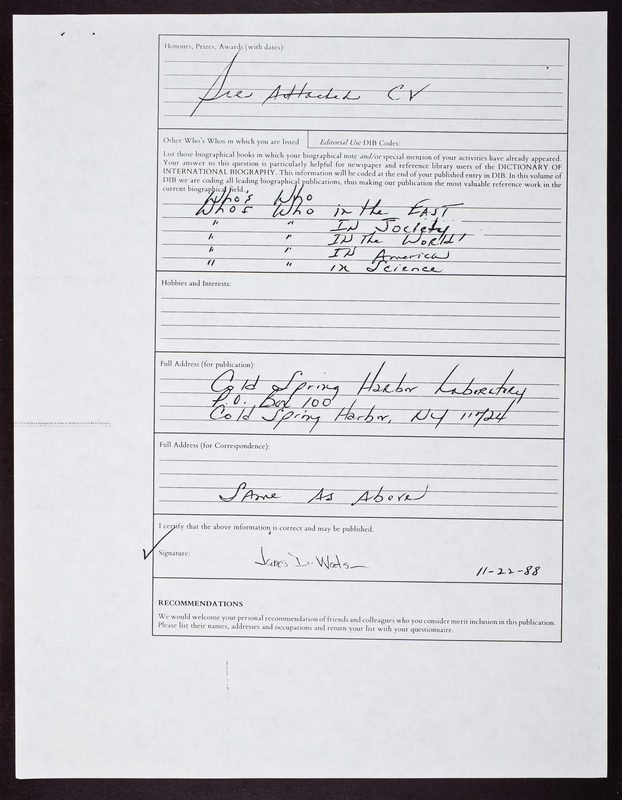 Honours, Prizes, Awards (with dates):
See Attached CV
Other Who's Whos in which you are listed
Editorial Use DIB Codes:
List those biographical books in which your biographical note and/or special mention of your activities have already appeared.
Your answer to this question is particularly helpful for newspaper and reference library users of the DICTIONARY OF
INTERNATIONAL BIOGRAPHY. This information will be coded at the end of your published entry in DIB. In this volume of
DIB we are coding all leading biographical publications, thus making our publication the most valuable reference work in the
current biographical field.
Who's Who
Who's Who in the EAST
" " IN Society
" " IN The World
" " IN America
" " in Science
Hobbies and Interests:
Full Address (for publication):
Cold Spring Harbor Laboratory
P.O. Box 100
Cold Spring Harbor, NY 11724
Full Address (for Correspondence):
Same As Above
I certify that the above information is correct and may be published.
Signature:
James D. Watson
11-22-88
RECOMMENDATIONS
We would welcome your personal recommendation of friends and colleagues who you consider merit inclusion in this publication.
Please list their names, addresses and occupations and return your list with your questionnaire.